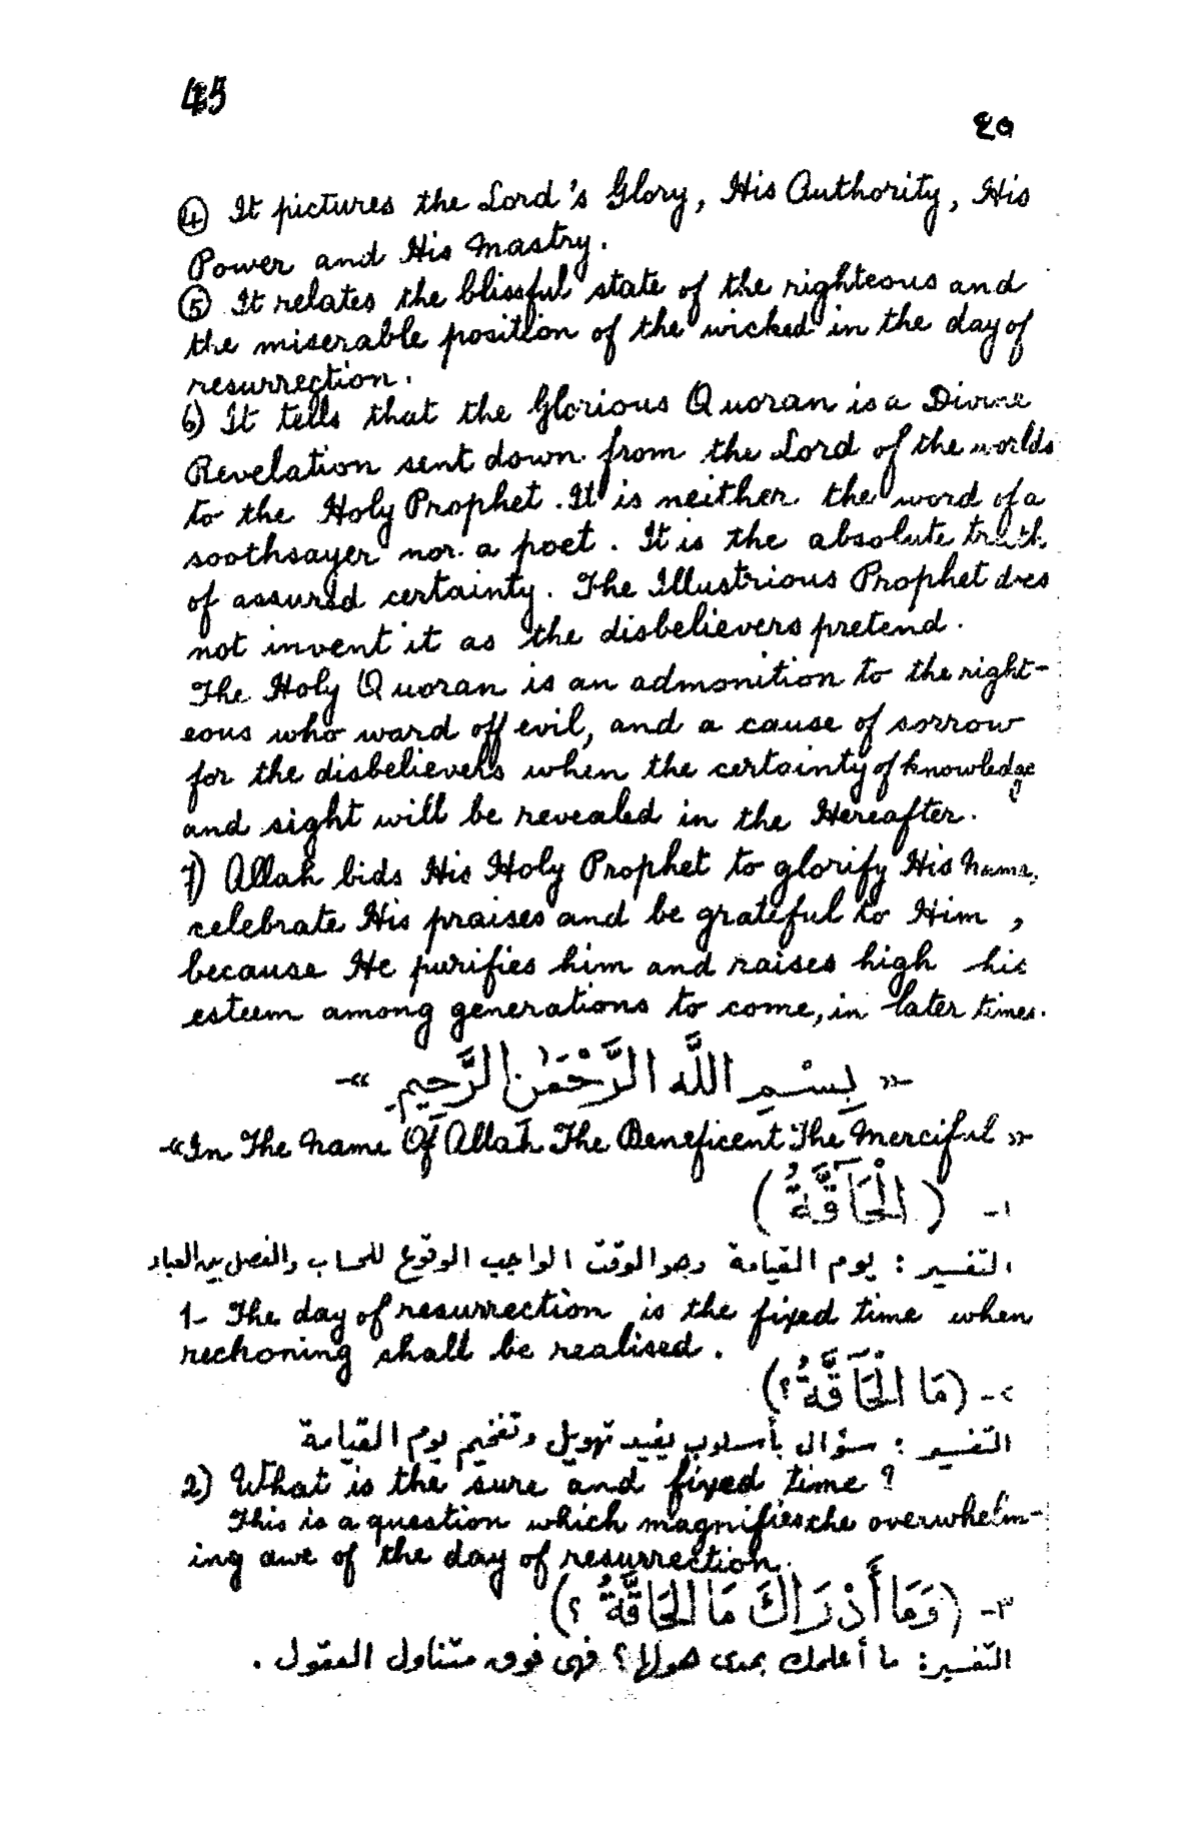 45
٤٥
④ It pictures the Lord's Glory, His Authority, His
Power and His Mastry.
⑤ It relates the blissful state of the righteous and
the miserable position of the wicked in the day of
resurrection.
6) It tells that the Glorious Quoran is a Divine
Revelation sent down from the Lord of the worlds
to the Holy Prophet. It is neither the word of a
soothsayer nor a poet. It is the absolute truth
of assured certainty. The Illustrious Prophet does
not invent it as the disbelievers pretend.
The Holy Quoran is an admonition to the right-
eous who ward off evil, and a cause of sorrow
for the disbelievers when the certainty of knowledge
and sight will be revealed in the Hereafter.
7) Allah bids His Holy Prophet to glorify His Name,
celebrate His praises and be grateful to Him,
because He purifies him and raises high his
esteem among generations to come, in later times.
-« بِسْمِ اللَّهِ الرَّحْمَٰنِ الرَّحِيمِ »-
-«In The Name Of Allah The Beneficent The Merciful »-
١- (الْحَآقَّةُ)
التفسير: يوم القيامة وهو الوقت الواجب الوقوع للحساب والفصل بين العباد
1- The day of resurrection is the fixed time when
reckoning shall be realised.
٢- (مَا الْحَآقَّةُ؟)
التفسير: سؤال بأسلوب يفيد تهويل وتفخيم يوم القيامة
2) What is the sure and fixed time?
This is a question which magnifies the overwhelm-
ing awe of the day of resurrection.
٣- (وَمَا أَدْرَاكَ مَا الحَاقَّةُ ؟)
التفسير: ما أعلمك بمدى هولها؟ فهى فوق متناول العقول.